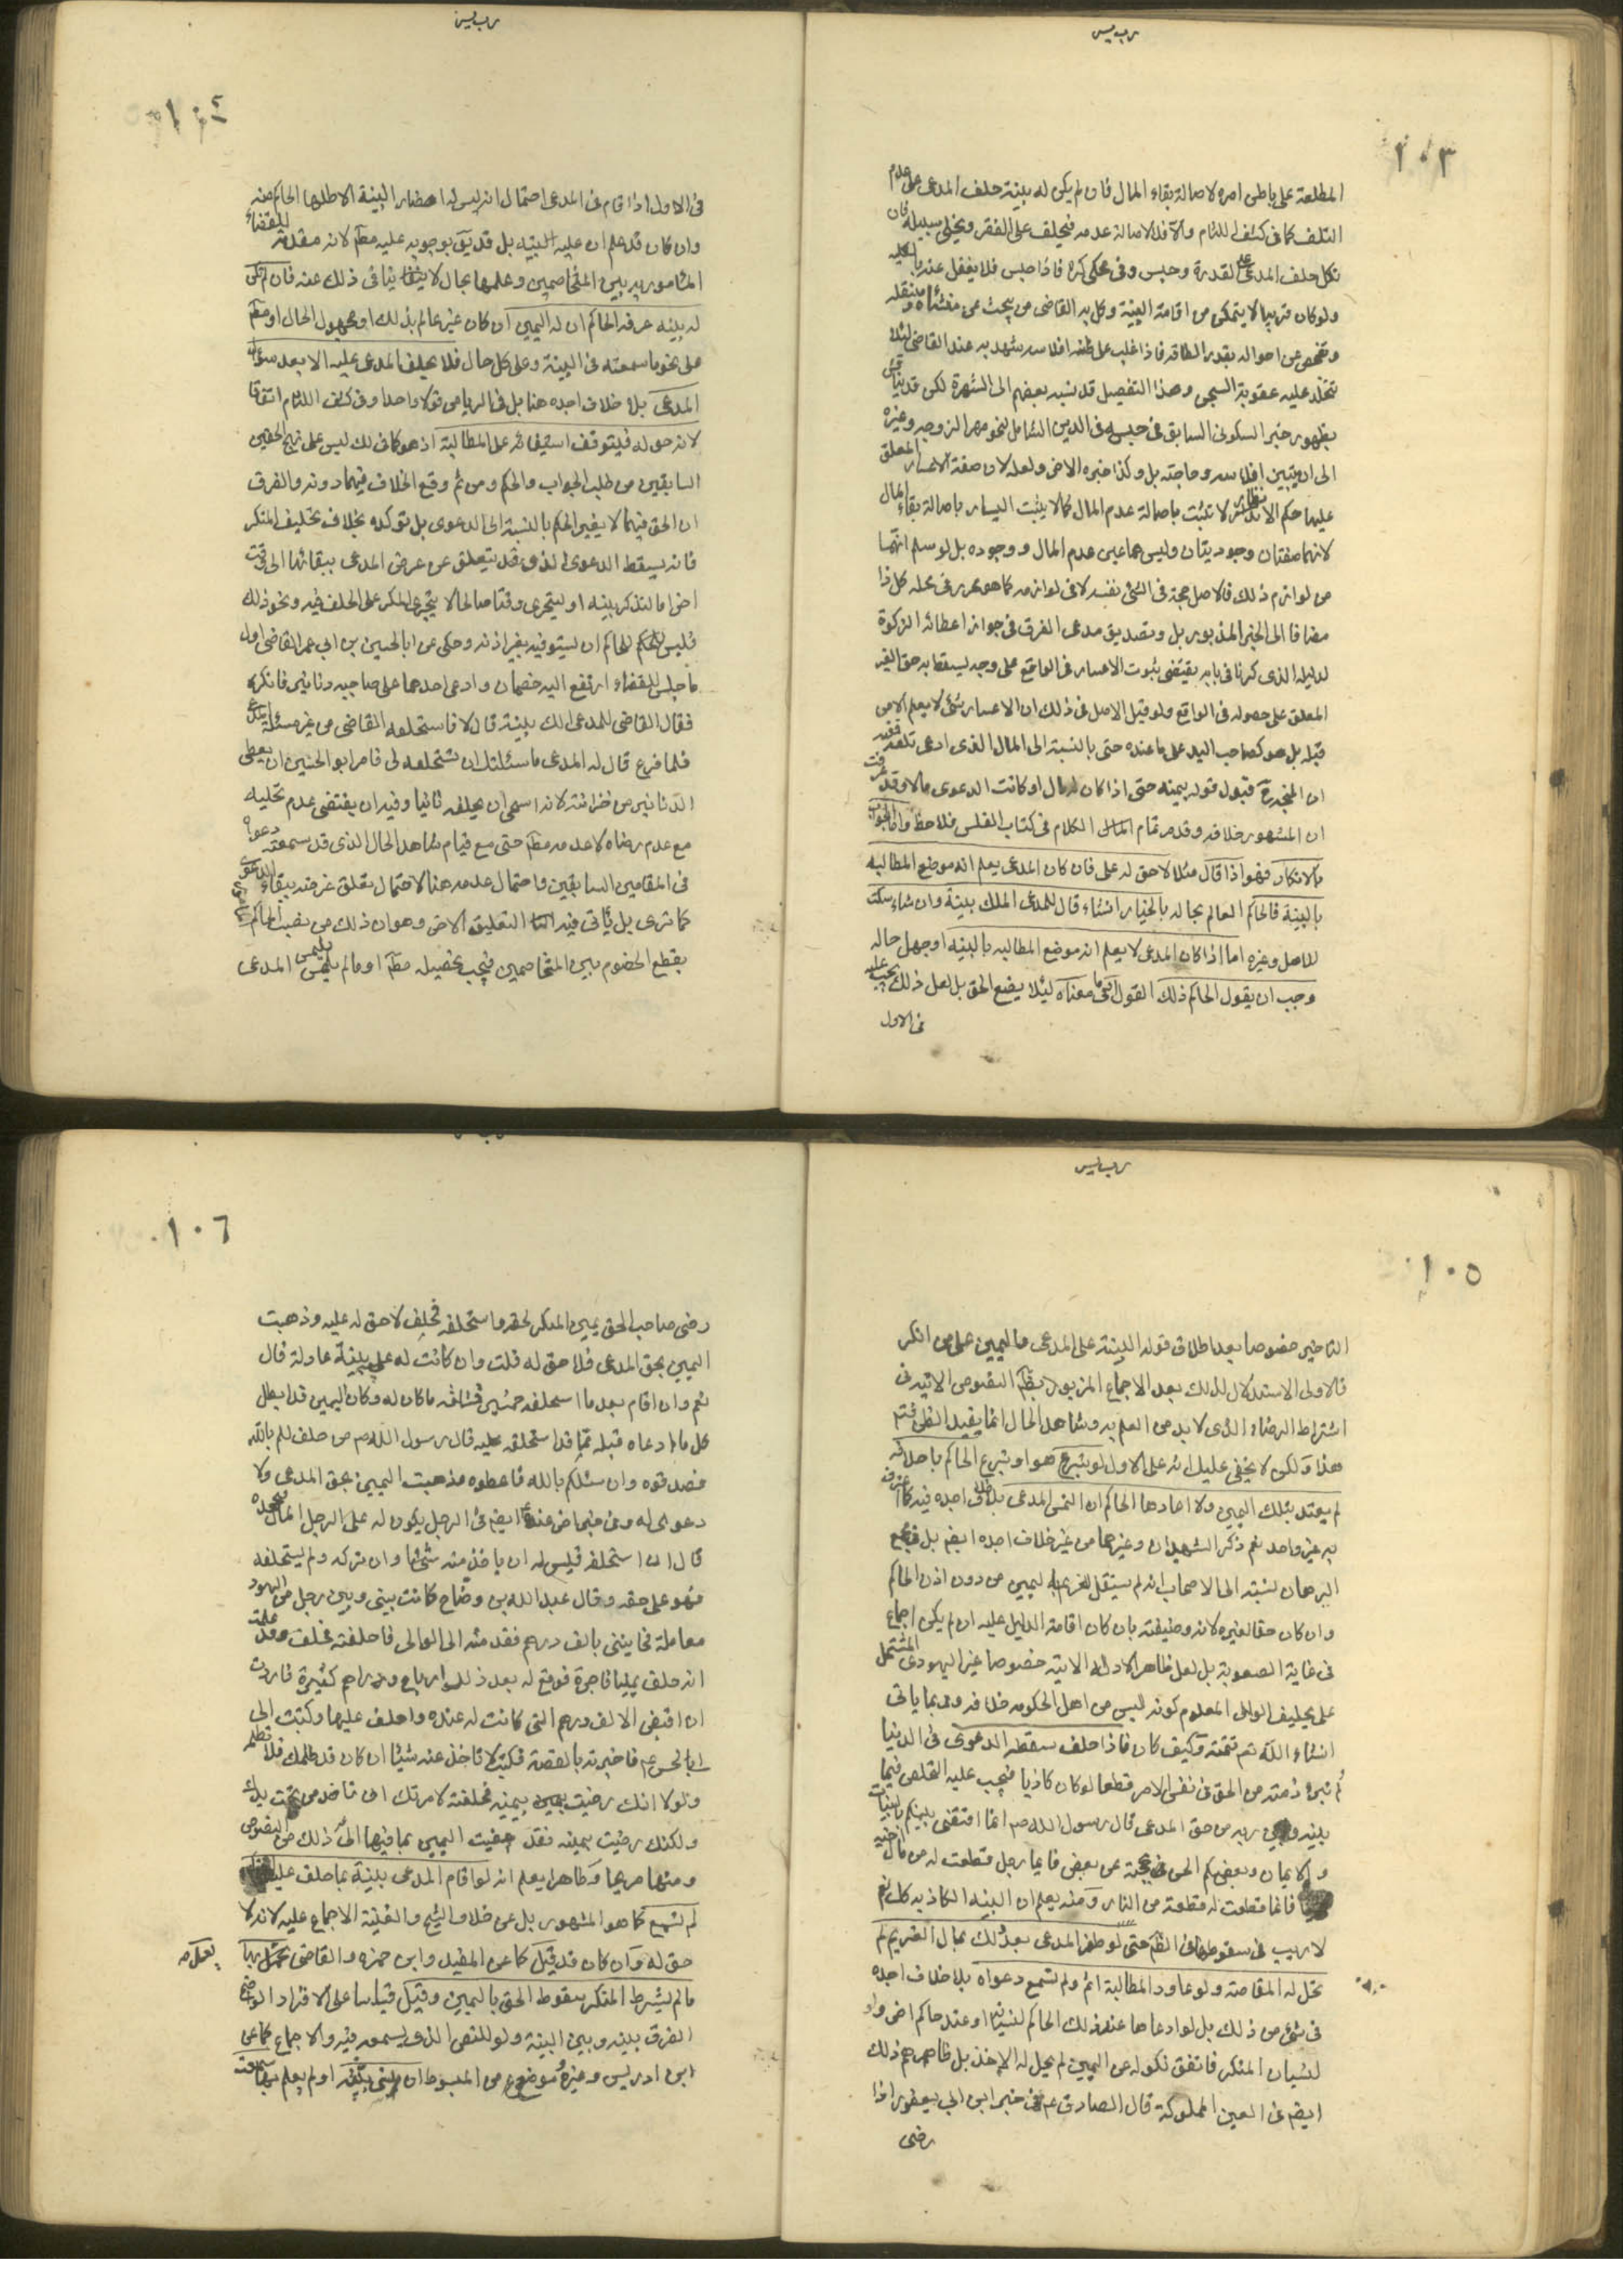 ١٠٣
المطلعة على باطن امره لاصالة بقاء المال فان لم يكن له بينة حلف المدعى على عدم
التلف كما فى كشف اللثام والا فلاصالة عدمه فيحلف على الفقر ويخلى سبيله فان
نكل حلف المدعى على القدرة وحبس وفى محكى كره فاذا حبس فلا يغفل عنه بالكليه
ولو كان غريبا لا يتمكن من اقامة البينة وكل به القاضى من يبحث عن منشأه ومنتقله
وتفحص عن احواله بقدر الطاقه فاذا غلب على ظنه افلاسه شهد به عند القاضى لئلا
تتخلد عليه عقوبة السجن وهذا التفصيل قد نسبه بعضهم الى الشهرة لكن قد يناقش
بظهور خبر السكونى السابق فى حبسه فى الدين الشامل لنحو مهر الزوجه وغيره
الى ان يتبين افلاسه وحاجته بل وكذا خبره الاخر ولعله لان صفة الاعسار المعلق
عليها حكم الانظار لا تثبت باصالة عدم المال كما لا يثبت اليسار باصالة بقاء المال
لانهما صفتان وجوديتان وليس هما عين عدم المال ووجوده بل لو سلم انهما
من لوازم ذلك فالاصل حجة فى الشئ نفسه لا فى لوازمه كما هو محرر فى محله كل ذا
مضافا الى الخبر المذبور بل وتصديق مدعى الفرق فى جواز اعطائه الزكوة
لدليله الذى كرنا فى بابه يقتضى ثبوت الاعسار فى الواقع على وجه يسقط به حق الغير
المعلق على حصوله فى الواقع ولو قيل الاصل فى ذلك ان الاعسار شئ لا يعلم الا من
قبله بل هو كصاحب اليد على ما عنده حتى بالنسبة الى المال الذى ادعى تلفه ففيه
ان المتجه ح قبول قوله بيمينه حتى اذا كان له مال او كانت الدعوى مالا وقد عرفت
ان المشهور خلافه وقدم تمام الكلام فى كتاب الفلس فلاحظ واما الجواب
بالانكار فهو اذا قال مثلا لا حق له على فان كان المدعى يعلم انه موضع المطالبه
بالبينة فالحاكم العالم بحاله بالخيار انشاء قال للمدعى الملك بينة وان شاء سكت
للاصل وغيره اما اذا كان المدعى لا يعلم انه موضع المطالبه بالبينه او جهل حاله
وجب ان يقول الحاكم ذلك القول او ما معناه لئلا يضع الحق بل لعل ذلك يجب عليه
فى الاول
١٠٤
فى الاول اذا قام فى المدعى احتمال انه ليس له احضار البينة الا طلبها الحاكم منه
وان كان قد علم ان عليه البينه بل قد يق بوجوبه عليه مطم لانه مقدمة للقضاء
المامور به بين المتخاصمين وعلمها بحال لا ينافى ذلك عنه فان لم تكن
له بينه عرفه الحاكم ان له اليمين ان كان غير عالم بذلك او مجهول الحال او مطم
على نحو ما سمعته فى البينة وعلى كل حال فلا يحلف المدعى عليه الا بعد سؤال
المدعى بلا خلاف اجده هنا بل فى الرياض قولا واحدا وفى كشف اللثام اتفاقا
لانه حق له فيتوقف استيفائه على المطالبة اذ هو كما فى لك ليس على نهج الحقين
السابقين من طلب الجواب والحكم ومن ثم وقع الخلاف فيهما دونه والفرق
ان الحق فيهما لا يغير الحكم بالنسبة الى الدعوى بل توكده بخلاف تحليف المنكر
فانه يسقط الدعوى الذى وقد يتعلق عن غرض المدعى ببقائها الى وقت
اخر اما لتذكر بينه او ليتحرى وقتا صالحا لا يتجرى المنكر على الحلف فيه ونحو ذلك
فليس للحاكم ان يستوفيه بغير اذنه وحكى عن ابا الحسين بن ابى عمر القاضى اول
ما جلس للقضاء ارتفع اليه خصمان وادعى احدهما على صاحبه دنانير فانكره
فقال القاضى للمدعى الك بينة قال لا فاستحلفه القاضى من غير مسئلة المدعى
فلما فرغ قال له المدعى ما سئلتك ان تستحلفه لى فامر ابو الحسين ان يعطى
الدنانير من خزانته لانه استحيى ان يحلفه ثانيا وفيه ان يقتضى عدم تحليه
مع عدم رضاه لا عدمه مطم حتى مع قيام شاهد الحال الذى قد سمعته دعواه
فى المقامين السابقين واحتمال عدمه هنا لاحتمال تعلق غرضه ببقاء الدعوى
كما ترى بل ياتى فيه التعليق الاخر وهو ان ذلك من نصب الحاكم
بقطع الخصوم بين المتخاصمين فيجب تحصيله مطم او ما لم يلتمس المدعى
١٠٥
التاخير خصوصا بعد اطلاق قوله البينة على المدعى واليمين على من انكر
فالاولى الاستدلال لذلك بعد الاجماع المزبور بظم النصوص الاتيه فى
اشتراط الرضاء الذى لا بد من العلم به وشاهد الحال انما يفيد الظن فتم
هذا ولكن لا يخفى عليك انه على الاول لو تبرع هو او تبرع الحاكم باحلافه
لم يعتد بتلك اليمين ولا اعادها الحاكم ان التمس المدعى بلا خلاف اجده فيه كما اعترف
به غير واحد نعم ذكر الشهيدان وغيرهما من غير خلاف اجده ايضم بل فى مجمع
البرهان نسبته الى الاصحاب انه لم يستقل الغريم باليمين من دون اذن الحاكم
وان كان حقا لغيره لانه وظيفته بان كان اقامة الدليل عليه ان لم يكن اجماع
فى غاية الصعوبة بل لعل ظاهر الادلة الاتيه خصوصا خبر اليهودى المشتمل
على تحليف الوالى المعلوم كونه ليس من اهل الحكومه خلافه وربما ياتى
انشاء الله تع تتمته وكيف كان فاذا حلف سقطه الدعوى فى الدنيا
ثم تبرئ ذمته من الحق فى نفس الامر قطعا لو كان كاذبا فيجب عليه التخلص فيما
بينه وبين ربه من حق المدعى قال رسول الله صم انما اقضى بينكم بالبينات
والايمان وبعضكم الحن بحجته عن بعض فايما رجل قطعت له من مال اخيه
فانما قطعت له قطعة من النار ومنه يعلم ان البينه الكاذبه كك نعم
لا ريب فى سقوطها فى الظم حتى لو ظفر المدعى بعد ذلك بمال الغريم لم
تحل له المقاصة ولو عاود المطالبة اثم ولم تسمع دعواه بلا خلاف اجده
فى شئ من ذلك بل لو ادعاها عند ذلك الحاكم لنسيانه او عند حاكم اخر ولو
لنسيان المنكر فاتفق نكوله عن اليمين لم يحل له الاخذ بل ظاهرهم ذلك
ايضم فى العين المملوكة قال الصادق عم فى خبر ابن ابى يعفور اذا
رضى
١٠٦
رضى صاحب الحق بيمين المنكر لحقه واستحلفه فحلف لا حق له عليه وذهبت
اليمين بحق المدعى فلا حق له قلت وان كانت له عليه بينة عادلة قال
نعم وان اقام بعد ما استحلفه خمسين قسامة ما كان له وكان اليمين قد ابطل
كل ما ادعاه قبله مما قد استحلفه عليه قال رسول الله صم من حلف لكم بالله
فصدقوه وان سئلكم بالله فاعطوه فذهبت اليمين بحق المدعى ولا
دعوى له وفى خبر اخر عنه ايضم فى الرجل يكون له على الرجل المال فيجحده
قال ان استحلفه فليس له ان ياخذ منه شئيا وان تركه ولم يستحلفه
فهو على حقه وقال عبد الله بن وضاح كانت بينى وبين رجل من اليهود
معاملة فخاننى بالف درهم فقدمته الى الوالى فاحلفته فحلف وقد علمت
انه حلف يمينا فاجرة فوقع له بعد ذلك ارباح ودراهم كثيرة فاردت
ان اقبض الالف درهم التى كانت له عنده واحلف عليها وكتبت الى
ابا الحسن عم فاخبرته بالقصة فكتب لا تاخذ عنه شيئا ان كان قد ظلمك فلا تظلمه
ولولا انك رضيت بيمينه فحلفته لامرتك ان تاخذ من تحت يدك
ولكنك رضيت بيمينه فقد مضيت اليمين بما فيها الى ذلك من النصوص
ومنها صريحا وظاهرا يعلم انه لو اقام المدعى بينة بما حلف عليه
لم تسمع كما هو المشهور بل عن خلاف الشيخ والغنية الاجماع عليه لانه لا
حق له وان كان قد قيل كما عن المفيد وابن حمزه والقاضى يعمل بها
ما لم يشترط المنكر سقوط الحق باليمين وقيل قياسا على الاقرار الواضح
الفرق بينه وبين البينة ولو للنص الذى سمعه فيه والاجماع كما عن
ابن ادريس وغيره وموضع من المبسوط ان نسى بينته او لم يعلم بها سمعت